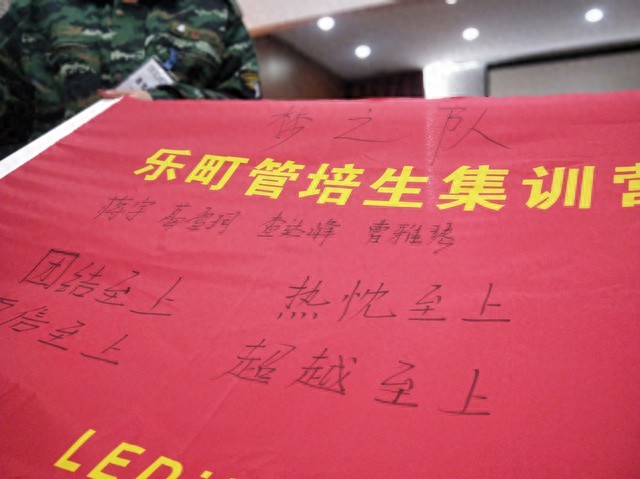 梦之队
乐町管培生集训营
陈宇 曹雅
团结至上 热忱至上
信至上 超越至上
LEDi